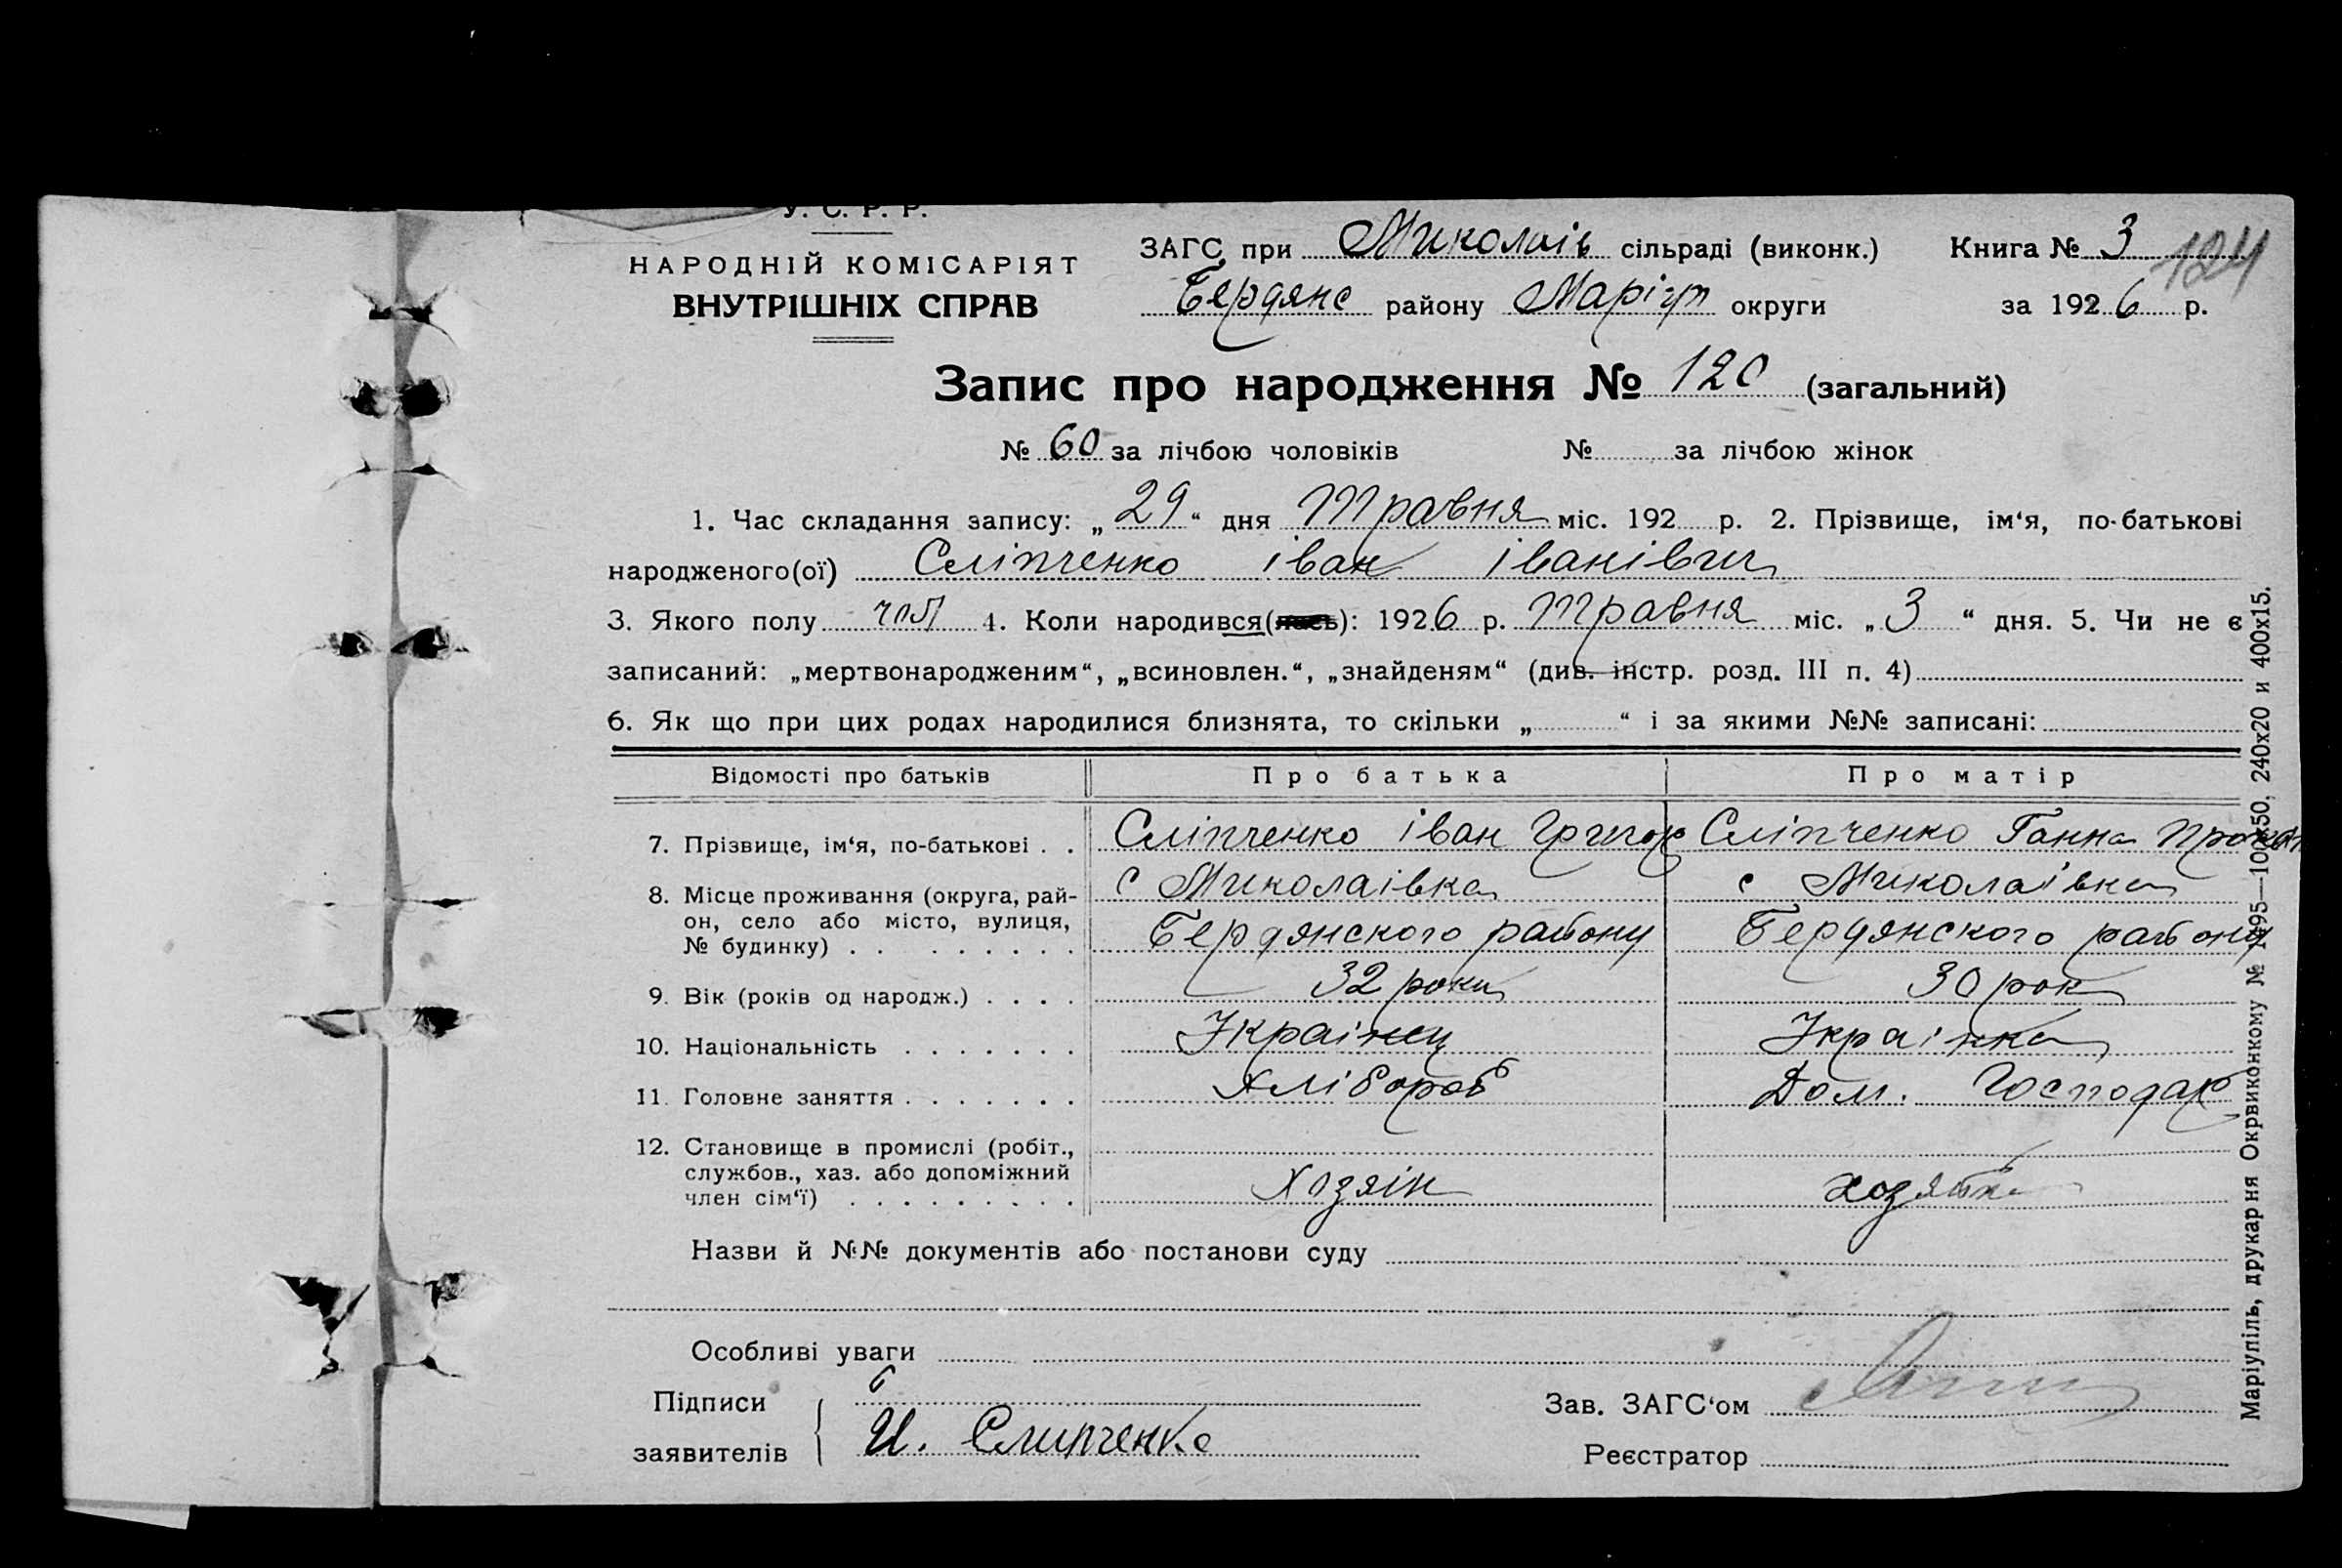 У. С. Р. Р.
НАРОДНІЙ КОМІСАРІЯТ
ВНУТРІШНІХ СПРАВ
ЗАГС при Миколаів сільраді (виконк.)
Бердянс району Маріуп округи
Книга № 3
124
за 1926 р.
Запис про народження № 120 (загальний)
№ 60 за лічбою чоловіків № за лічбою жінок
1. Час складання запису: „29“ дня Травня міс. 192 р. 2. Прізвище, ім‘я, по-батькові
народженого(ої) Сліпченко іван іванівич
3. Якого полу чол 4. Коли народився(лась): 1926 р. Травня міс. „3“ дня. 5. Чи не є
записаний: „мертвонародженим“, „всиновлен.“, „знайденям“ (див. інстр. розд. III п. 4)
6. Як що при цих родах народилися близнята, то скільки „ “ і за якими №№ записані:
Відомості про батьків Про батька Про матір
7. Прізвище, ім‘я, по-батькові . . Сліпченко іван Григор Сліпченко Ганна
8. Місце проживання (округа, рай- с Миколаівка с Миколаівка
он, село або місто, вулиця, Бердянского району Бердянского району
№ будинку) . . . . . . . .
9. Вік (років од народж.) . . . . 32 роки 30 рок
10. Національність . . . . . . . Украінец Украінка
11. Головне заняття . . . . . . . Хлібороб Дом. Господар
12. Становище в промислі (робіт.,
службов., хаз. або допоміжний
член сім‘ї) . . . . . . . . . Хозяін хозяйка
Назви й №№ документів або постанови суду
Особливі уваги
Підписи
заявителів И. Слипченко
Зав. ЗАГС‘ом
Реєстратор
Маріупіль, друкарня Окрвиконкому № 1495—100х50, 240х20 и 400х15.